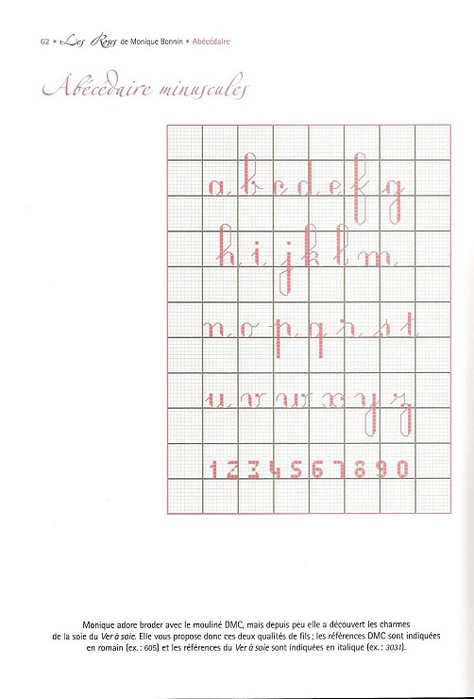 62 • Les Roses de Monique Bonnin • Abécédaire
Abécédaire minuscules
a b c d e f g
h i j k l m
n o p q r s t
u v w x y z
1 2 3 4 5 6 7 8 9 0
Monique adore broder avec le mouliné DMC, mais depuis peu elle a découvert les charmes
de la soie du Ver à soie. Elle vous propose donc ces deux qualités de fils ; les références DMC sont indiquées
en romain (ex. : 605) et les références du Ver à soie sont indiquées en italique (ex. : 3031).